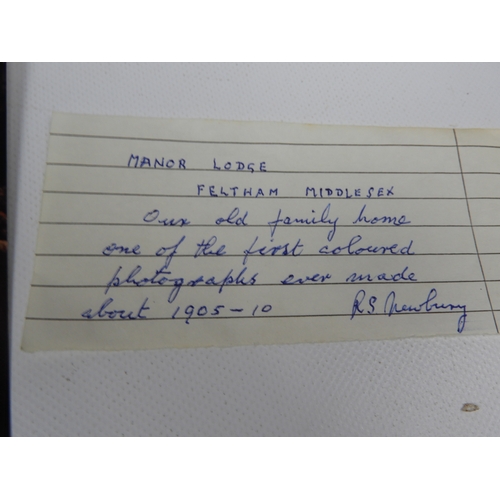 MANOR LODGE
FELTHAM MIDDLESEX
Our old family home
one of the first coloured
photographs ever made
about 1905-10 RS Newbury